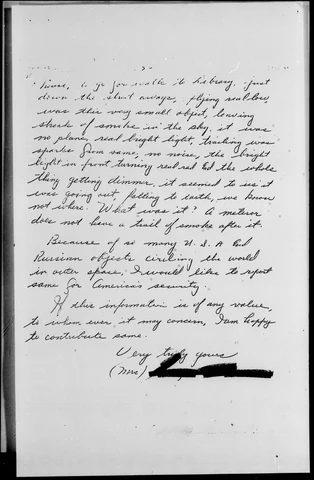 - 2 -
home, to go for walk to Library. Just
down the street aways, flying real low
was this very small object, leaving
streak of smoke in the sky, it was
no plane, real bright light, trailing was
sparks from same, no noise, the bright
light in front turning real red & the whole
thing getting dimmer, it seemed to us it
was going out, falling to earth, we know
not where. What was it? A meteor
does not have a trail of smoke after it.
Because of so many U.S.A and
Russian objects circling the world
in outer space, I would like to report
same for America's security.
If this information is of any value,
to whom ever, it may concern, I am happy
to contribute same.
Very truly yours
(Mrs)